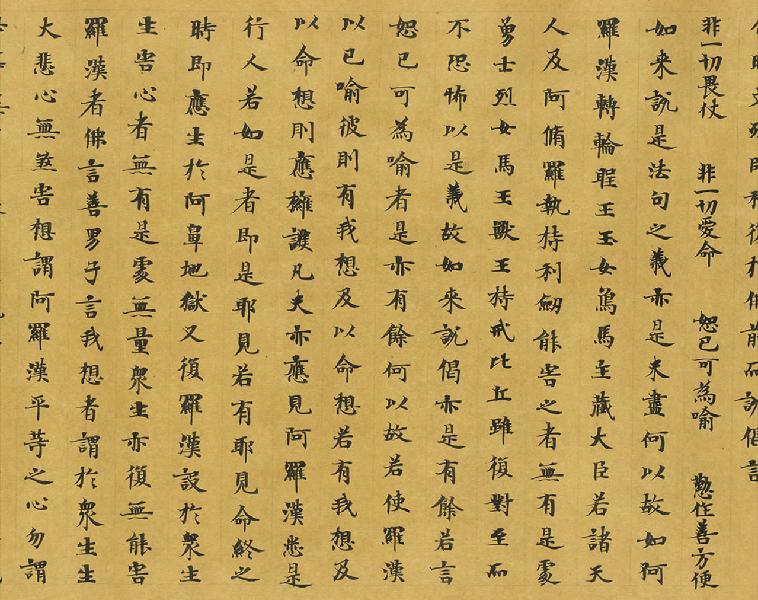 非一切畏杖 非一切愛命 恕己可為喻 懃作善方便
如来說是法句之義亦是未盡何以故如阿
羅漢轉輪聖王玉女象馬主藏大臣若諸天
人及阿脩羅執持利劒能害之者無有是處
勇士烈女馬王獸王持戒比丘雖復對至而
不恐怖以是義故如来說偈亦是有餘若言
恕己可為喻者是亦有餘何以故若使羅漢
以己喻彼則有我想及以命想若有我想及
以命想則應擁護凡夫亦應見阿羅漢悉是
行人若如是者即是耶見若有耶見命終之
時即應生於阿鼻地獄又復羅漢設於衆生
生害心者無有是處無量衆生亦復無能害
羅漢者佛言善男子言我想者謂於衆生生
大悲心無煞害想謂阿羅漢平等之心勿謂